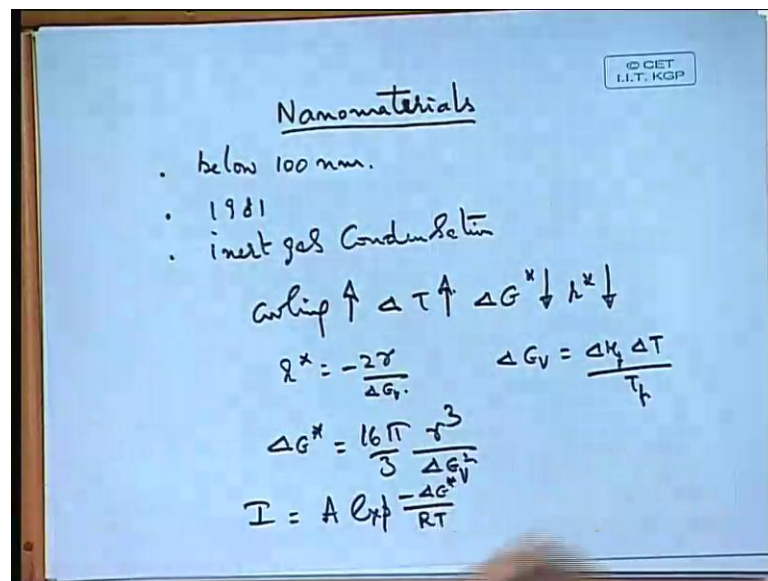 © CET
I.I.T. KGP
Nanomaterials
. below 100 nm.
. 1981
. inert gas Condensation
cooling ↑ ΔT ↑ ΔG* ↓ r* ↓
r* = -2γ/ΔGv. ΔGv = ΔHf ΔT/Tf
ΔG* = 16π/3 γ³/ΔGv²
I = A exp -ΔG*/RT